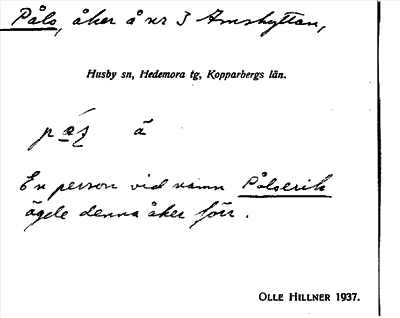 Påls, åker å nr 3 Amshyttan,
Husby sn, Hedemora tg, Kopparbergs län.
ä
En person vid namn Pålserik
ägde denna åker förr.
OLLE HILLNER 1937.